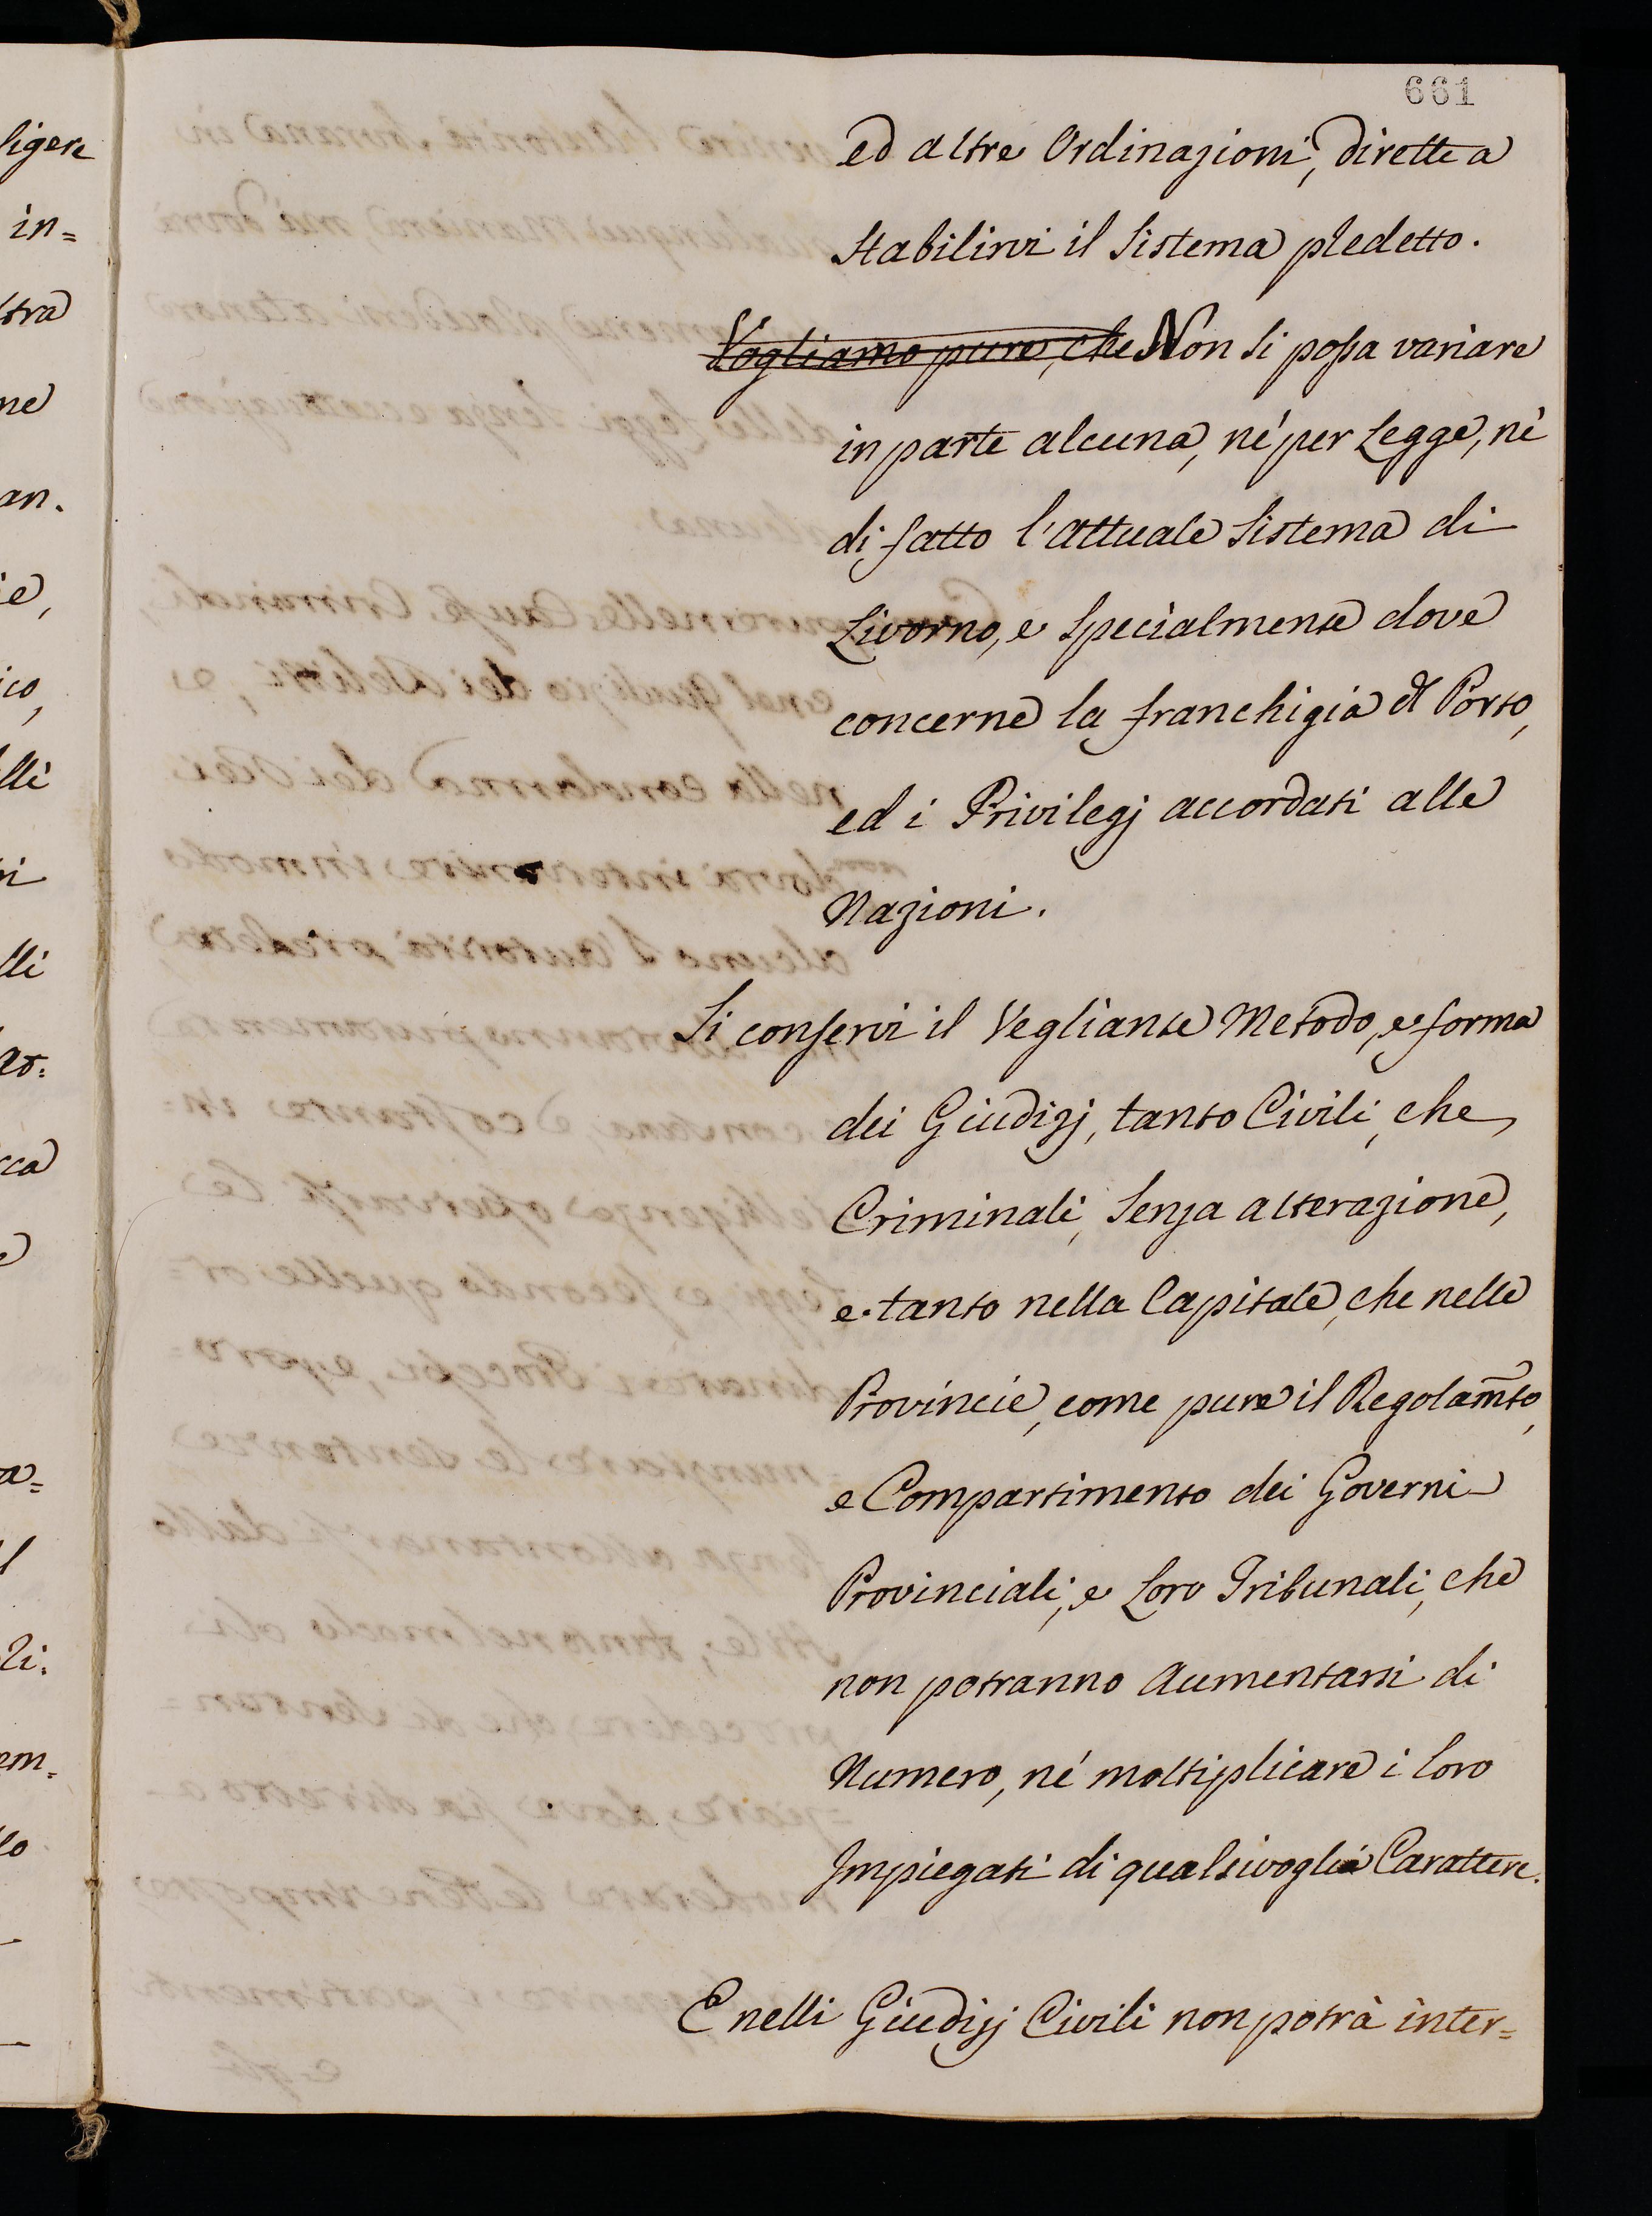 661
ed altre Ordinazioni, dirette a
stabilirvi il Sistema pledetto.
Vogliamo pure, che Non si possa variare
in parte alcuna, nè per Legge, nè
di fatto l'attuale Sistema di
Livorno, e specialmente dove
concerne la franchigia del Porto,
ed i Privilegj accordati alle
Nazioni.
Si conservi il Vegliante Metodo, e forma
dei Giudizj, tanto Civili, che
Criminali, senza alterazione,
e tanto nella Capitale, che nelle
Provincie, come pure il Regolam̃to,
e Compartimento dei Governi
Provinciali, e Loro Tribunali, che
non potranno aumentarsi di
Numero, né moltiplicare i loro
Impiegati di qualsivoglia Carattere.
E nelli Giudizj Civili non potrà inter=